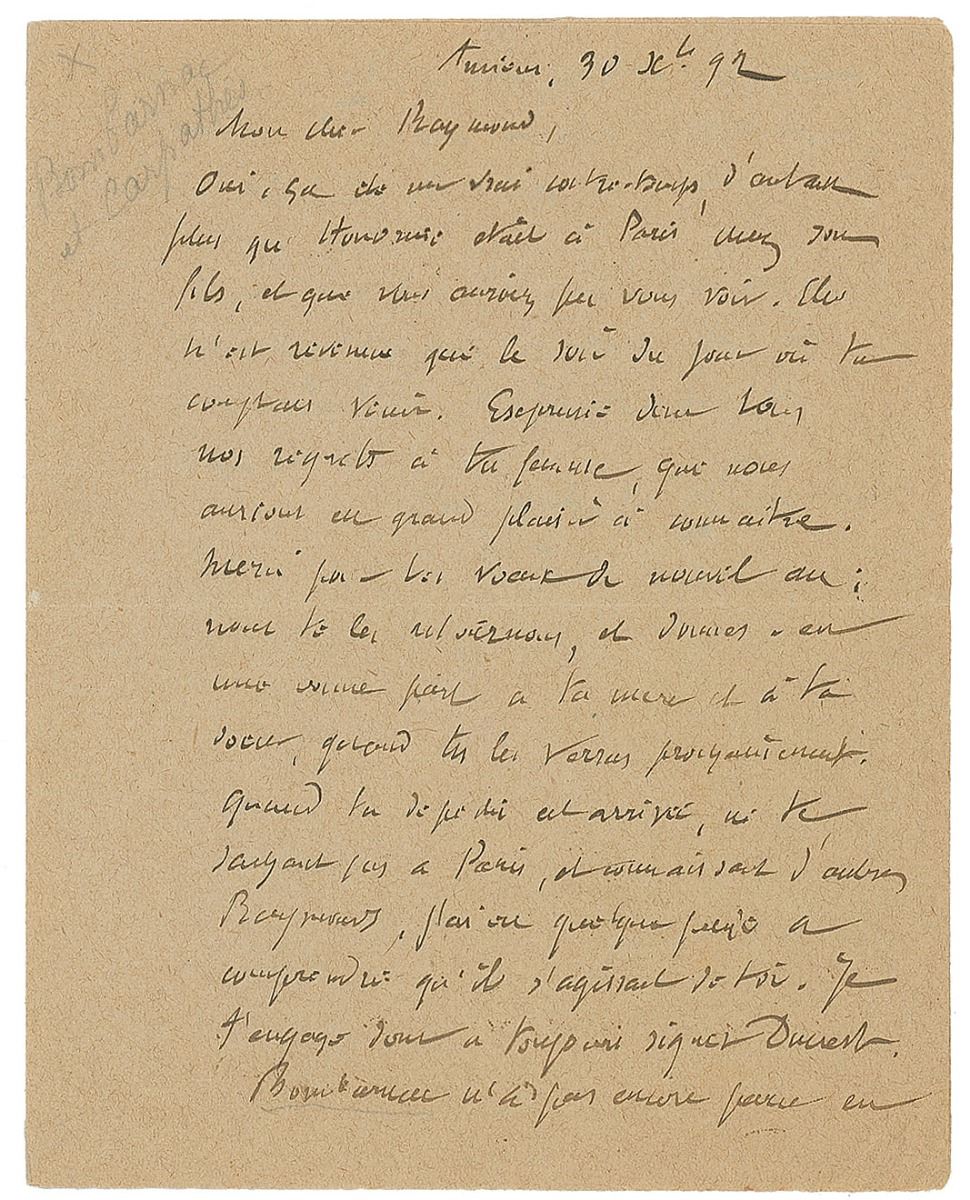 Bombarnac
et Carpathes
Amiens, 30 Xbre 92
Mon cher Raymond,
Oui, ça été un vrai contre-temps, d'autant
plus que Honorine était à Paris chez son
fils, et que vous auriez pu vous voir. Elle
n'est revenue que le soir du jour où tu
comptais venir. Exprime donc tous
nos regrets à ta femme, que nous
aurions eu grand plaisir à connaître.
Merci pour tes vœux de nouvel an ;
nous te les retournons, et donnes-en
une bonne part à ta mère et à ta
sœur, quand tu les verras prochainement.
Quand ta dépêche est arrivée, ne te
sachant pas à Paris, et connaissant d'autres
Raymonds, j'ai eu quelque peine à
comprendre qu'il s'agissait de toi. Je
t'engage donc à toujours signer Ducrest.
Bombarnac n'a pas encore paru en